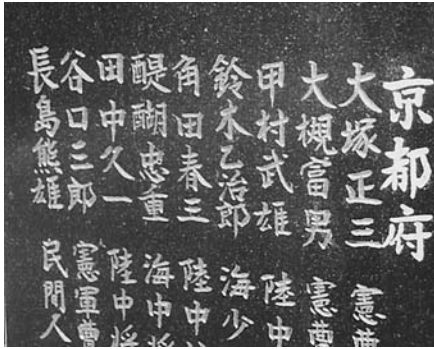 京都府
大塚正三 憲曹
大槻富男 憲曹
甲村武雄 陸中
鈴木乙治郎 海少
角田春三 陸中
醍醐忠重 海中将
田中久一 陸中将
谷口三郎 憲軍曹
長島熊雄 民間人